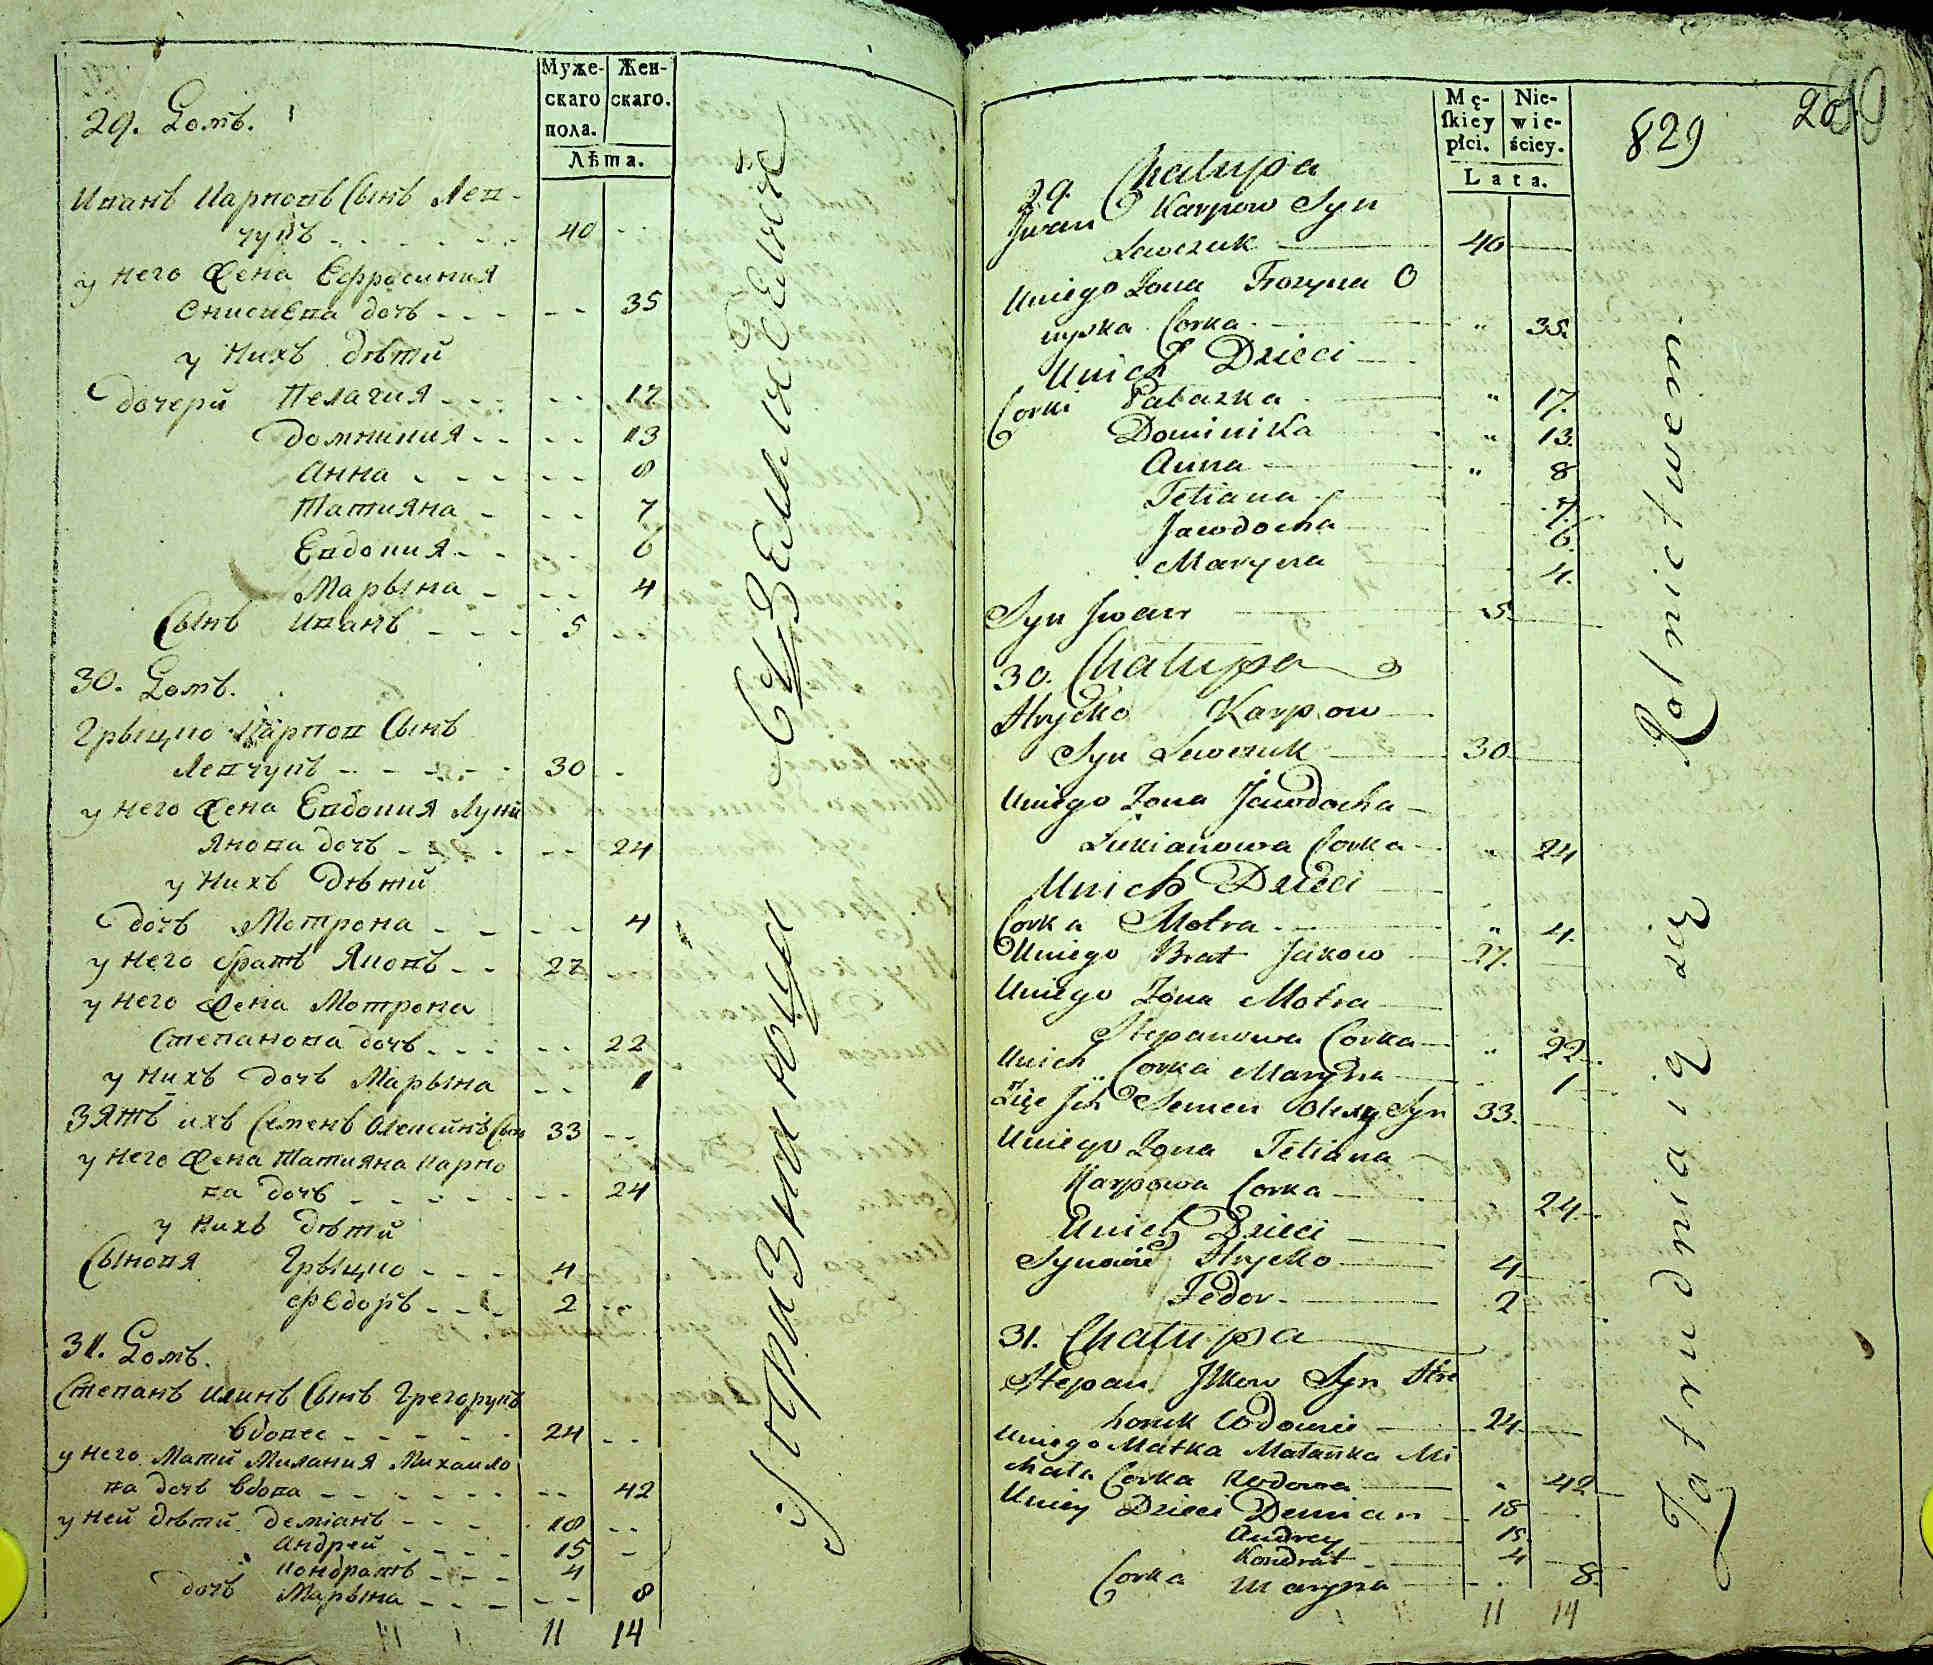 Муже-
скаго
пола.
Жен-
скаго.
Лѣта.
29. Домъ.
Иванъ Карповъ Сынъ Лев-
чукъ 40
у него жена Ефросиния
35
у нихъ дѣти
дочери Пелагия 17
Домникия 13
Анна 8
Татияна 7
Евдокия 6
Марына 4
Сынъ Иванъ 5
30. Домъ.
Грыцко Карпов Сынъ
Левчукъ 30
у него жена Евдокия Луки
янова дочь 24
у нихъ дѣти
дочь Мотрона 4
у него братъ Яковъ 27
у него жена Мотрона
Степанова дочь 22
у нихъ дочь Марына 1
Зять ихъ Семенъ Олексинъ Сын 33
у него жена Татияна Карпо
ва дочь 24
у нихъ дѣти
Сыновя Грыцко 4
Федоръ 2
31. Домъ.
Степанъ Илинъ Сынъ Грегорукъ
вдовец 24
у него мати Милания Михаило
ва дочь вдова 42
у ней дѣти Деміанъ 18
Андрей 15
Кондратъ 4
дочь Марына 8
11 14
Mę-
ſkiey
płci.
Nie-
wie-
ściey.
Lata.
829
20
29. Chałupa
Iwan Karpow Syn
Lewczuk 40
Uniego Żona Frozyna O
nyska Corka 35.
Unich Dzieci
Corki Pałazka 17.
Dominika 13.
Anna 8
Tetiana 7.
Jawdocha 6.
Maryna 4.
Syn Jwan 5.
30. Chałupa
Hryćko Karpow
Syn Lewczuk 30
Uniego Żona Jewdocha
Łukianowa Corka 24
Unich Dzieci
Corka Motra 4.
Uniego Brat Jakow 27.
Uniego Żona Motra
Stepanowa Corka 22
Unich Corka Maryna 1
Zięć Jch Semen Olexy Syn 33.
Uniego Żona Tetiana
Karpowa Corka 24
Unich Dzieci
Synowie Hrycko 4
Fedor 2
31. Chałupa
Stepan Jlkow Syn Hre
horuk Wdowiec 24
Uniego Matka Małanka Mi
chała Corka Wdowa 42
Uniey Dzieci Demian 18
Andrey 15.
Kondrat 4
Corka Maryna 8.
11 14